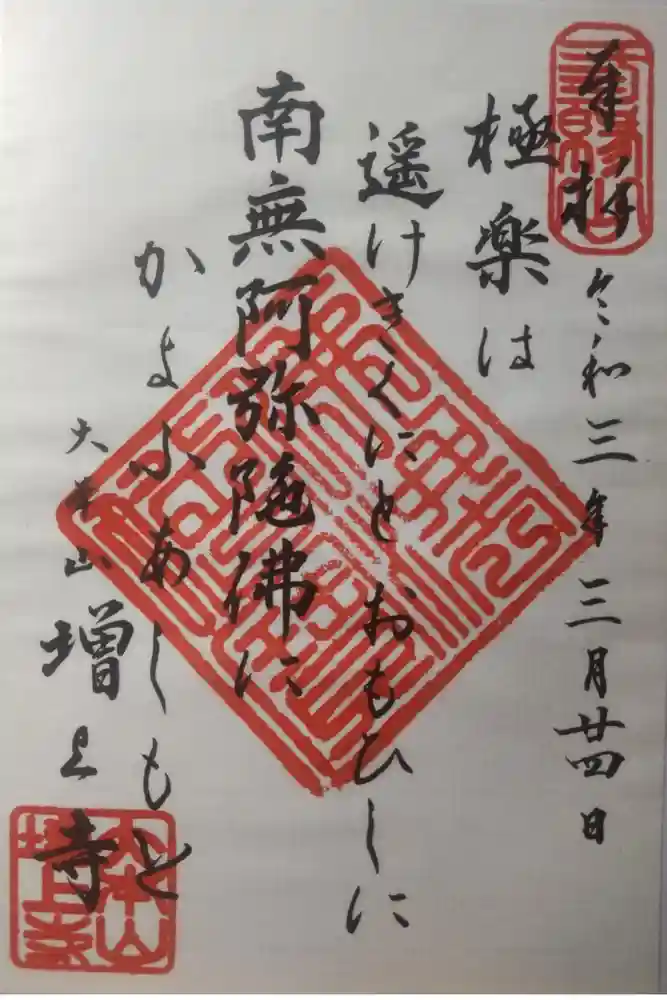 奉拝
令和三年三月廿四日
極楽は
遥けきくにとおもひしに
南無阿弥陀佛に
かよふあしもと
大本山
増上寺
大本山
増上寺